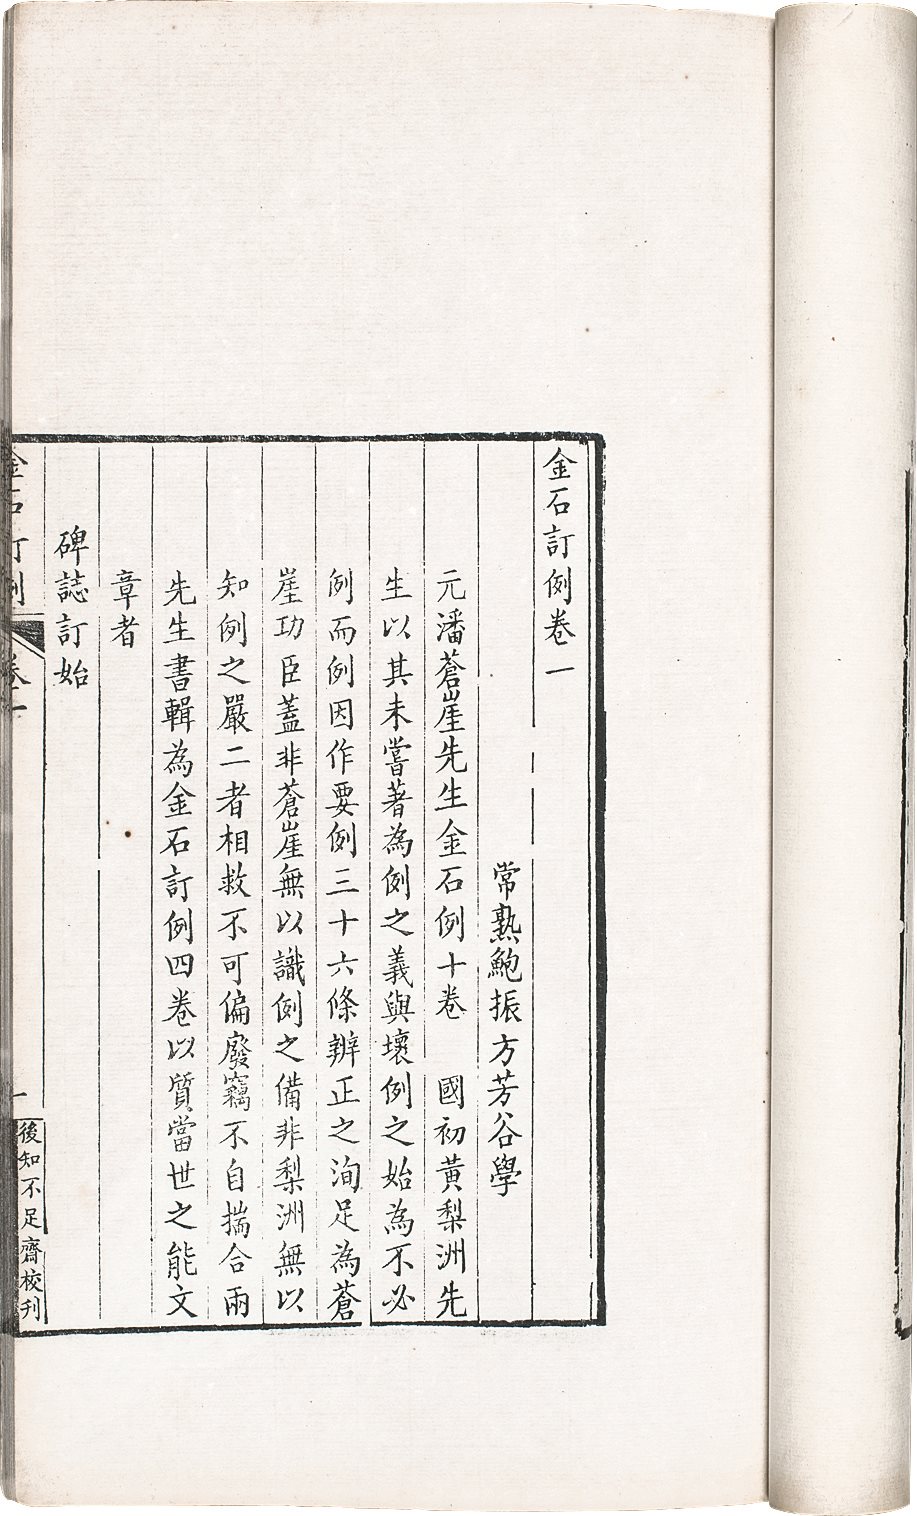 金石訂例卷一
常熟鮑振方芳谷學
元潘蒼崖先生金石例十卷　國初黃梨洲先
生以其未嘗著為例之義與壞例之始為不必
例而例因作要例三十六條辨正之洵足為蒼
崖功臣蓋非蒼崖無以識例之備非梨洲無以
知例之嚴二者相救不可偏廢竊不自揣合兩
先生書輯為金石訂例四卷以質當世之能文
章者
碑誌訂始
金石訂例　卷一　一　後知不足齋校刊